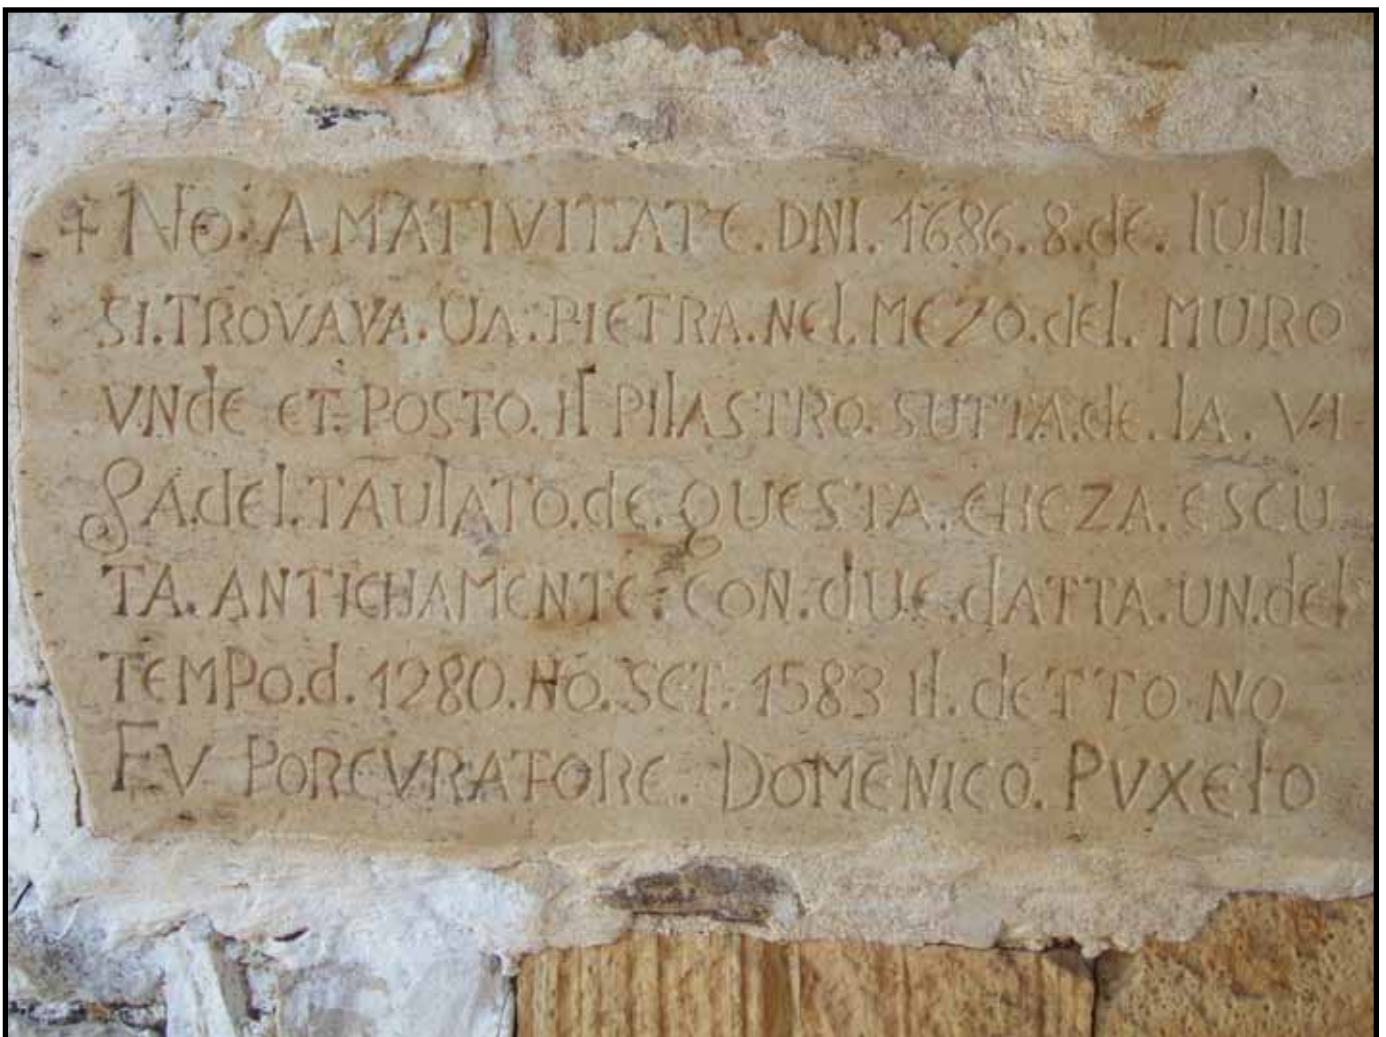 + No. A MATIVITATE. DNI. 1686. 8. de. Iulii
SI. TROVAVA. UA. PIETRA. Nel. MEZO. del. MURO
V.NdE ET. POSTO. Il PIlASTRO. SUTTA. de. lA. VI-
gA. del. TAUlATO. de. QUESTA. EHEZA. ESCU
TA. ANTICHAMENTE. CON. dUE. dATTA. UN. del
TEMPO. d. 1280. NO. SET. 1583 Il. dETTO NO
FV PORCVRATORE. DOMENICO. PVXElO